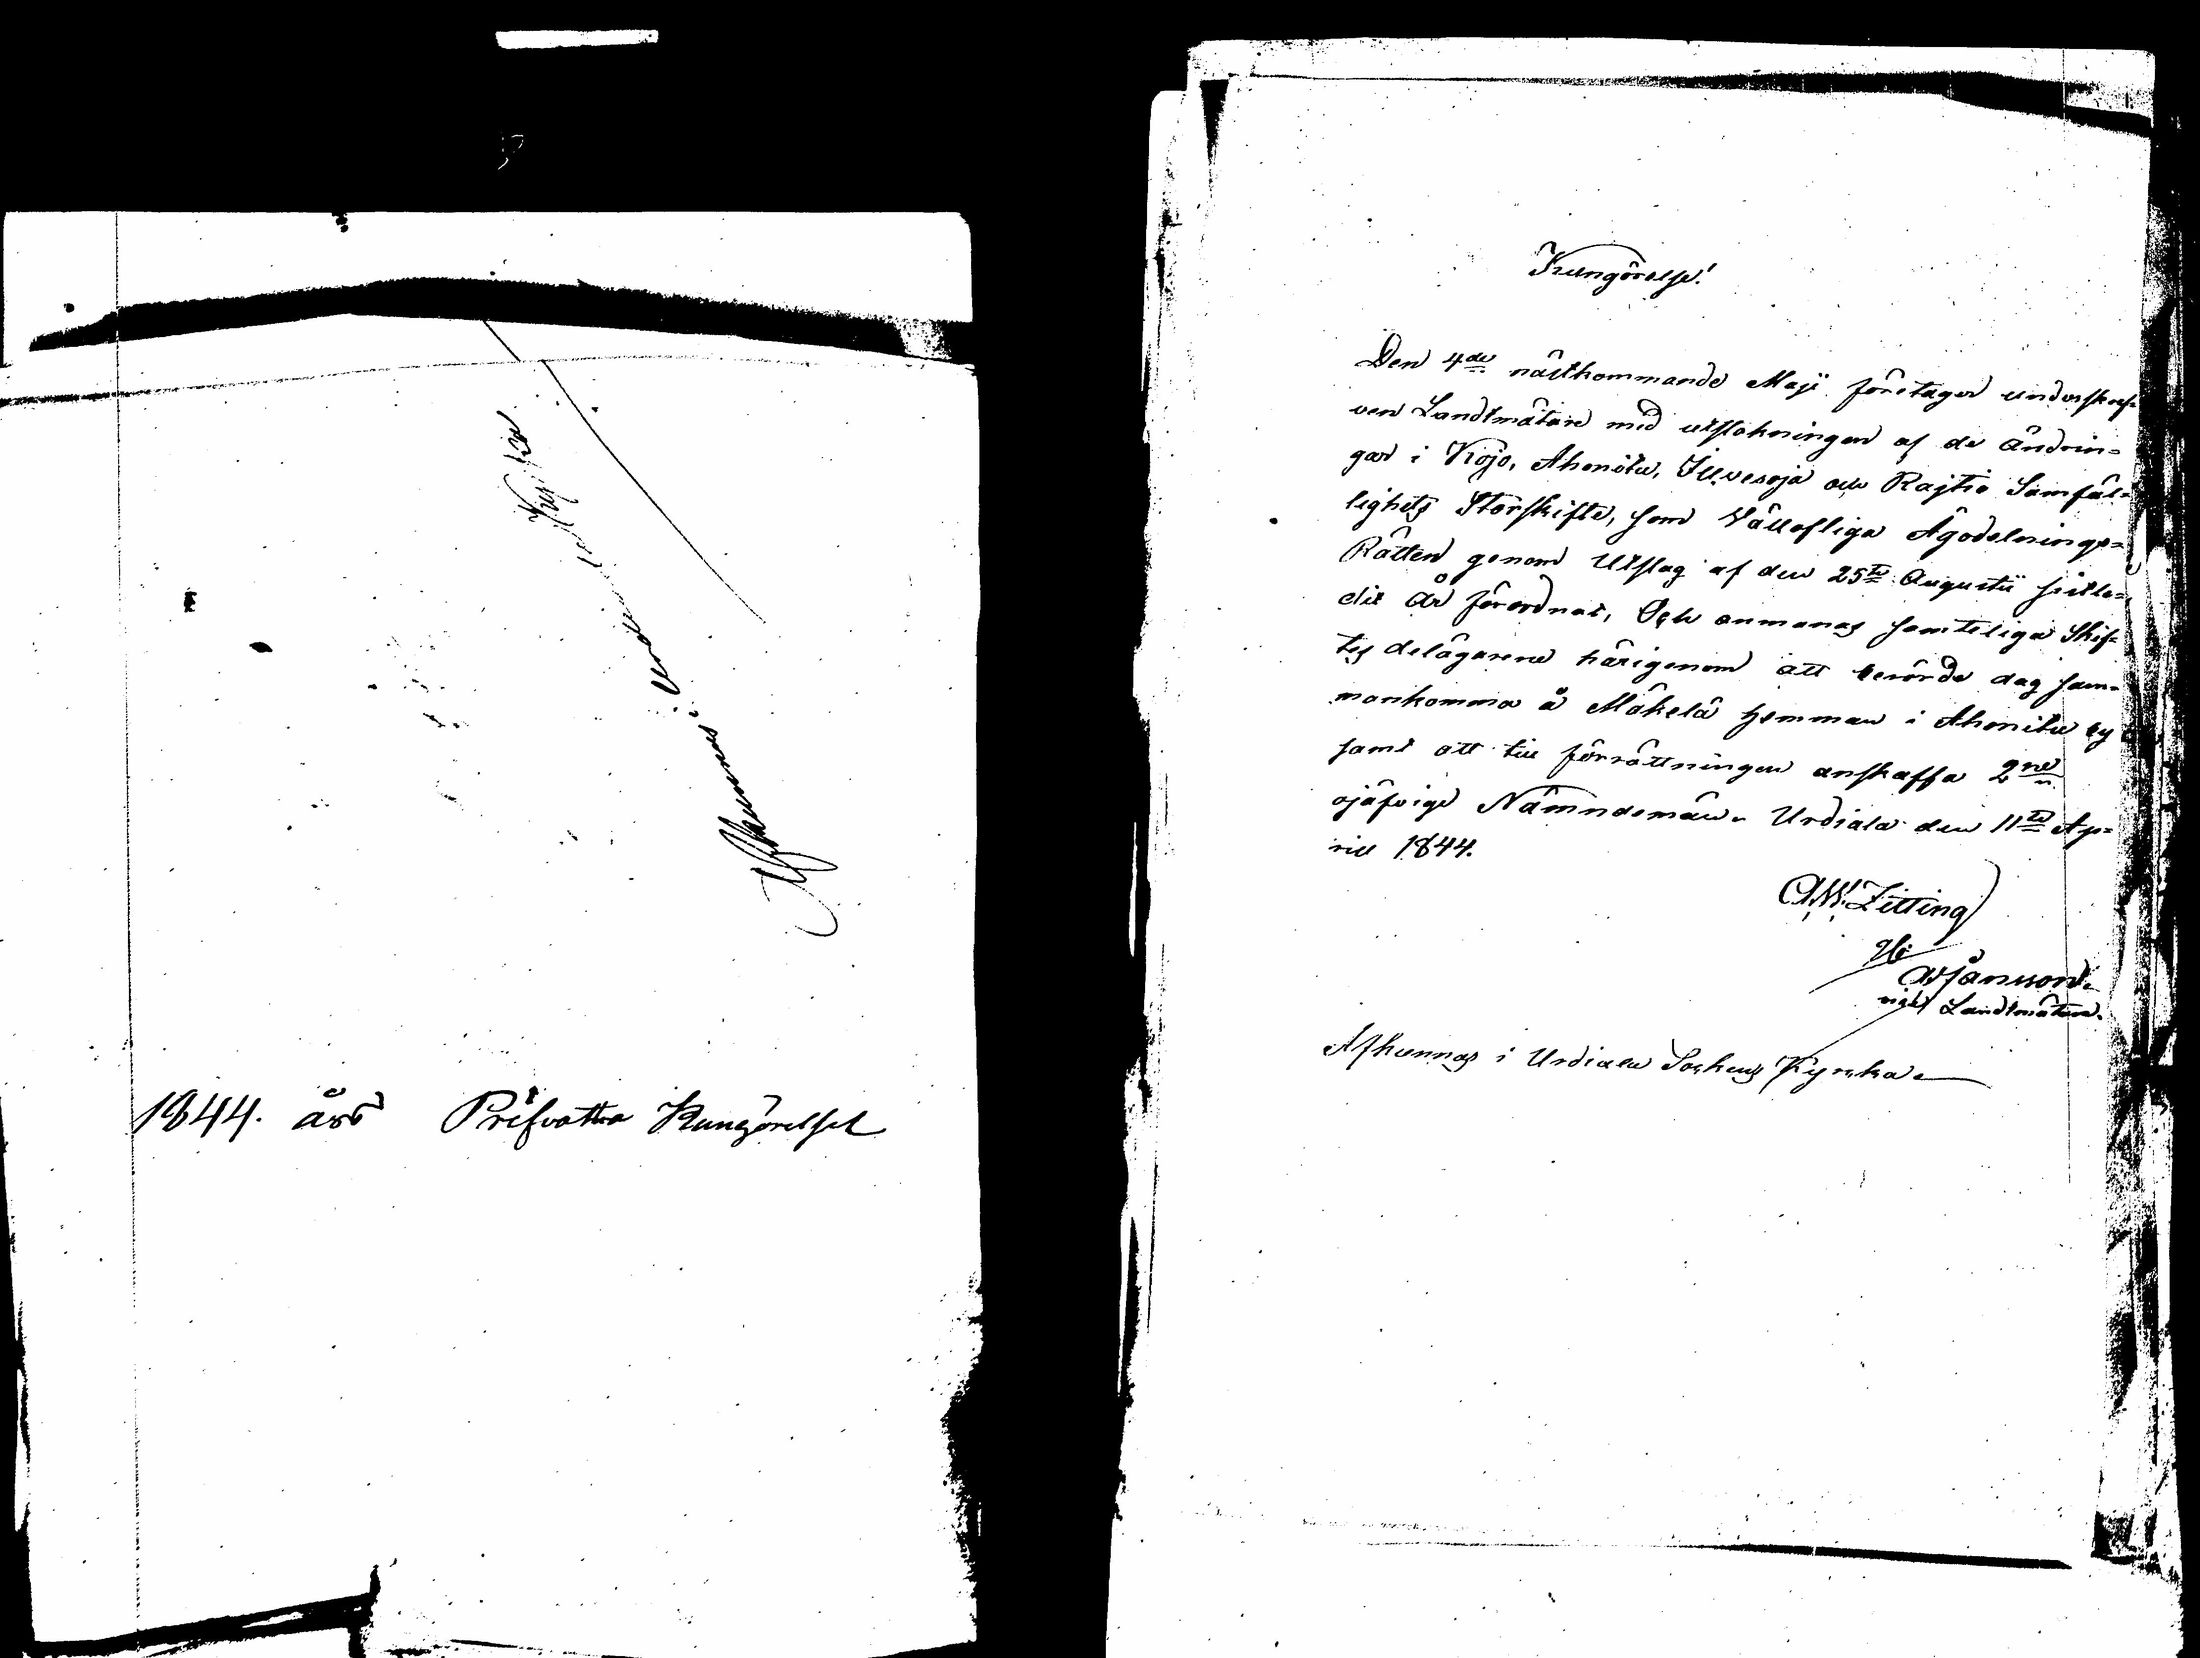 Afkunnas i Urdiala Kyrka
1844. års Prifvatta Kungörelser
Kungörelse!
Den 4de nästkommande Maji företager underskref-
ven Landtmätare med utstakningen af de ändrin-
gar i Kojo, Ahonitu, Illvesoja och Rajtio Samfäl-
lighets Storskifte, som Vällofliga Ägodelnings-
Rätten genom Utslag af den 25te Augustii sistle-
dit År förordnat, Och anmanas samteliga Skif-
tes delägarene härigenom att berörde dag sam-
mankomma å Mäkelä hemman i Ahonitu by
samt att till förrättningen anskaffa 2ne
ojäfvige Nämndemän. Urdiala den 11te Ap-
rill 1844.
C.W. Zitting
Landtmätare.
Afkunnas i Urdiala Sockens Kyrka